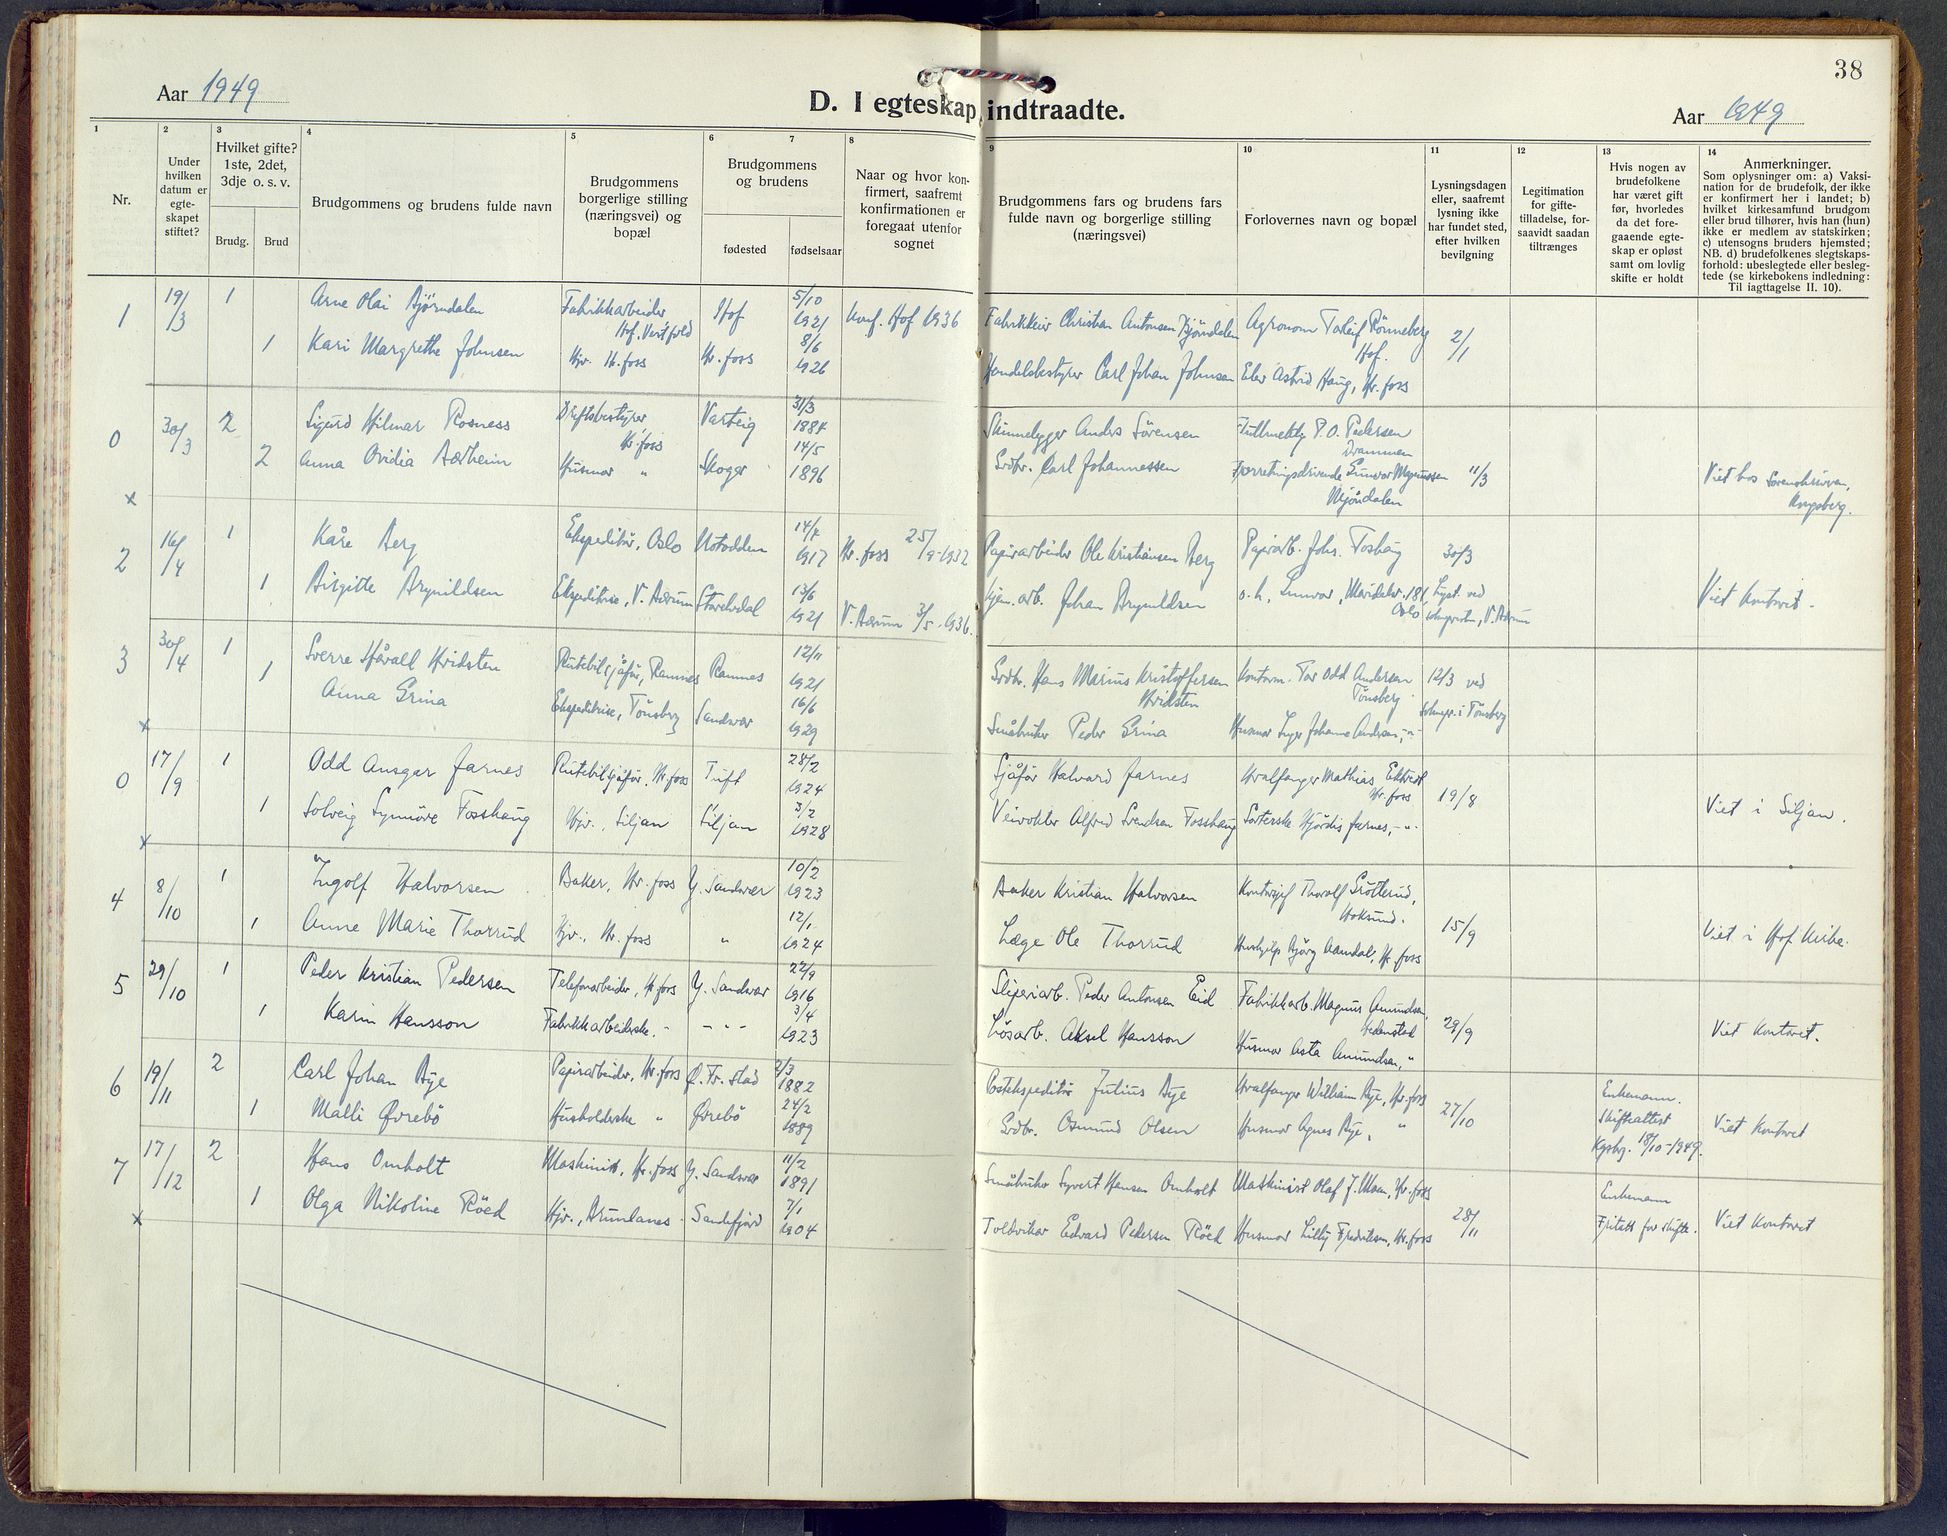 38
Aar 1949
D. I egteskap indtraadte.
Aar 1949
1
Nr.
2
Under hvilken datum er egte-skapet stiftet?
3
Hvilket gifte? 1ste, 2det, 3dje o. s. v.
Brudg.
Brud
4
Brudgommens og brudens fulde navn
5
Brudgommens borgerlige stilling (næringsvei) og bopæl
6
7
Brudgommens og brudens
fødested
fødselsaar
8
Naar og hvor kon-firmert, saafremt konfirmationen er foregaat utenfor sognet
9
Brudgommens fars og brudens fars fulde navn og borgerlige stilling (næringsvei)
10
Forlovernes navn og bopæl
11
Lysningsdagen eller, saafremt lysning ikke har fundet sted, efter hvilken bevilgning
12
Legitimation for gifte-tilladelse, for-saavidt saadan tiltrænges
13
Hvis nogen av brudefolkene har været gift før, hvorledes da det fore-gaaende egte-skap er opløst samt om lovlig skifte er holdt
14
Anmerkninger.
Som oplysninger om: a) Vaksi-nation for de brudefolk, der ikke er konfirmert her i landet; b) hvilket kirkesamfund brudgom eller brud tilhører, hvis han (hun) ikke er medlem av statskirken; c) utensogns bruders hjemsted; NB. d) brudefolkenes slegtskaps-forhold: ubeslegtede eller besleg-tede (se kirkebokens indledning: Til iagttagelse II. 10).
1 19/3 1 Arne Olai Bjørndalen Fabrikkarbeider Hof, Vestfold Hof 5/10 1921 Konf. Hof 1936 Christian Antonsen Bjørndalen Agronom Torleif Rønneberg Hof. 2/1
1 Kari Margrethe Johnsen Hjv. Hv.foss Hv.foss 8/6 1926 Handelsbestyrer Carl Johan Johnsen Elev Astrid Haug, Hv.foss
0 30/3 2 Sigurd Hilmar Rosness Driftsbestyrer Hv.foss Varteig 31/3 1884 Skinnelegger Anders Sørensen P. O. Pedersen Drammen 11/3 Viet hos Sorenskriveren, Kongsberg.
2 Anna Ovidia Aarheim Husmor " Skoger 14/5 1896 Grdbr. Carl Johannessen Forretningsdrivende Gunvor Magnussen Mjøndalen
x
2 16/4 1 Kåre Berg Ekspeditør, Oslo Notodden 14/7 1917 Hv.foss 25/9-1932 Papirarbeider Ole Kristiansen Berg Papirarb. Johs. Foshaug 30/3 Viet kontoret.
1 Birgitte Brynildsen Ekspeditrise, V. Bærum 13/6 1921 V. Bærum 3/5-1936. arb. Johan Brynildsen Gunvor, Maridalsv. 181, Oslo Lyst ved soknepresten, V. Bærum
3 30/4 1 Sverre Håvall Hvidsten Rutebilsjåfør, Ramnes Ramnes 12/11 1921 Grdbr. Hans Marius Kristoffersen Hvidsten Kontorm. Tor Odd Andersen Tønsberg 12/3 ved sokнepr. i Tønsberg
1 Anna Grina Ekspeditrise, Tønsberg Sandsvær 16/6 1929 Småbruker Peder Grina Husmor Inger Johanne Andersen, -"-
x
0 17/9 1 Odd Ansgar Jarnes Rutebilsjåfør, Hv.foss Tuft 28/2 1924 Sjåfør Halvard Jarnes Hvalfanger Mathias Hv.foss 19/8 Viet i Siljan.
1 Solveig Synnøve Fosshaug Hjv., Siljan Siljan 3/2 1928 Veivokter Alfred Svendsen Fosshaug Sorterske Hjørdis Jarnes, -"-
x
4 8/10 1 Ingolf Halvorsen Baker, Hv.foss Y. Sandsvær 10/2 1923 Baker Kristian Halvorsen Kontorsjef Thoralf Grøtterud, Hokksund. 15/9 Viet i Hof kirke.
1 Anne Marie Thorrud Hjv., Hv.foss " 12/1 1924 Læge Ole Thorrud Hushjelp Bjørg Aamdal, Hv.foss
5 29/10 1 Peder Kristian Pedersen Telefonarbeider, Hv.foss Y. Sandsvær 22/9 1916 Sliperiarb. Peder Antonsen Eid Fabrikkarb. Magnus Amundsen, Hedenstad 29/9 Viet kontoret.
1 Karin Hansson Fabrikkarbeiderske. - -"- 3/4 1923 Løsarb. Aksel Hansson Husmor Asta Amundsen, "
6 19/11 2 Carl Johan Bye Papirarbeider, Hv.foss Ø. Fr.stad 2/3 1882 Postekspeditør Julius Bye Hvalfanger William Bye, Hv.foss 27/10 Enkemann. Skifteattest Kgsbg. 18/10-1949. Viet kontoret
1 Malli Øvrebø Husholderske " Øvrebø 24/2 1889 Grdbr. Osmund Olsen Husmor Agnes Bye, "
7 17/12 2 Hans Omholt Maskinist, Hv.foss Y. Sandsvær 11/2 1891 Småbruker Syvert Hansen Omholt Maskinist Olaf J. Moen, Hv.foss 28/11 Enkemann Fritatt for skifte. Viet kontoret
1 Olga Nikoline Röed Hjv., Brunlanes. Sandefjord 7/1 1904 Toldvikar Edvard Pedersen Röed Husmor Lilly Fredriksen, Hv.foss
x